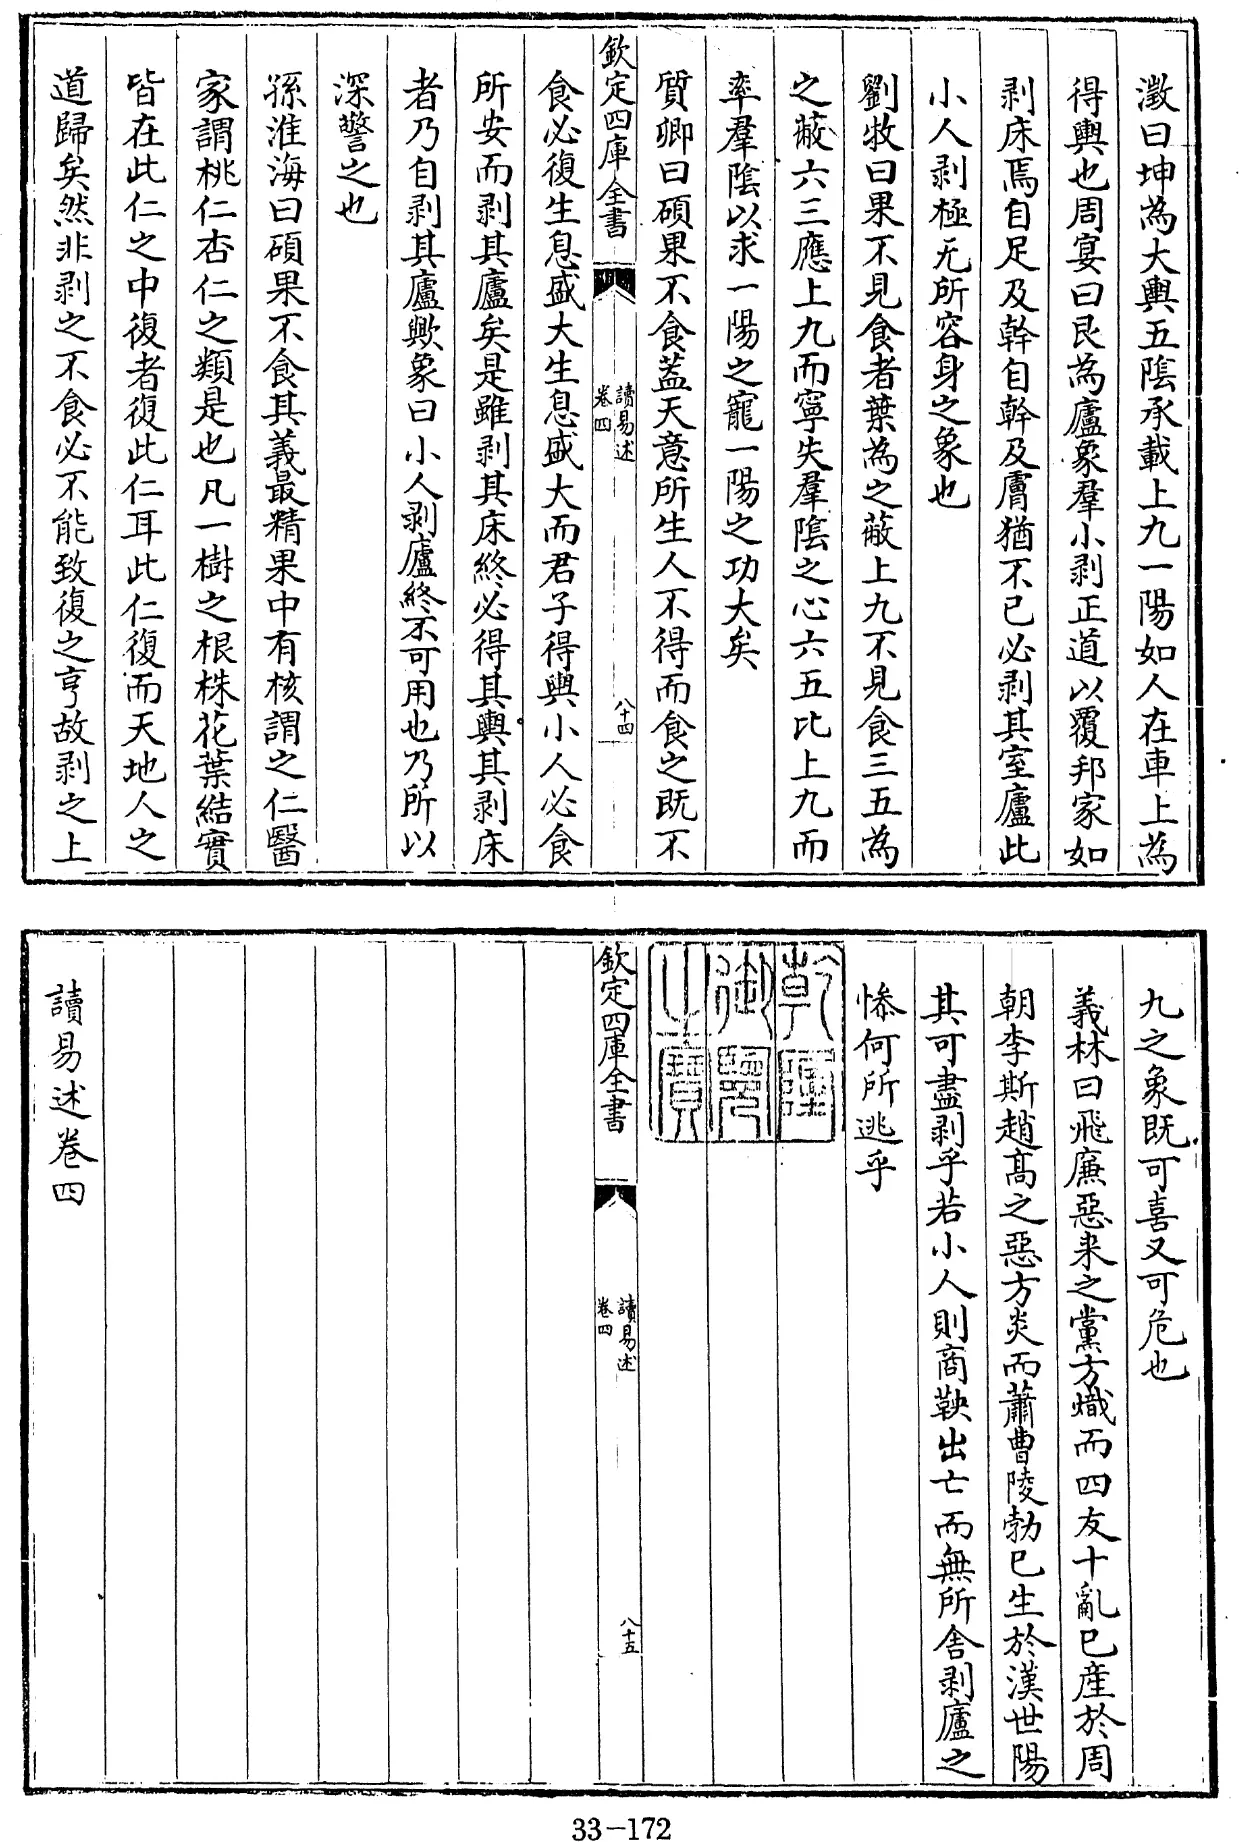 澂曰坤為大輿五陰承載上九一陽如人在車上為
得輿也周宴曰艮為廬象羣小剥正道以覆邦家如
剥床焉自足及幹自幹及膚猶不已必剥其室廬此
小人剥極无所容身之象也
劉牧曰果不見食者葉為之蔽上九不見食三五為
之蔽六三應上九而寧失羣陰之心六五比上九而
率羣陰以求一陽之寵一陽之功大矣
質卿曰碩果不食葢天意所生人不得而食之既不
欽定四庫全書
讀易述
卷四
八十四
食必復生息盛大生息盛大而君子得輿小人必食
所安而剥其廬矣是雖剥其床終必得其輿其剥床
者乃自剥其廬歟象曰小人剥廬終不可用也乃所以
深警之也
孫淮海曰碩果不食其義最精果中有核謂之仁醫
家謂桃仁杏仁之類是也凡一樹之根株花葉結實
皆在此仁之中復者復此仁耳此仁復而天地人之
道歸矣然非剥之不食必不能致復之亨故剥之上
九之象既可喜又可危也
義林曰飛廉惡来之黨方熾而四友十亂已產於周
朝李斯趙高之惡方炎而蕭曹陵勃已生於漢世陽
其可盡剥乎若小人則商鞅出亡而無所舍剥廬之
慘何所逃乎
乾隆
御覽
之寶
欽定四庫全書
讀易述
卷四
八十五
讀易述卷四
33-172